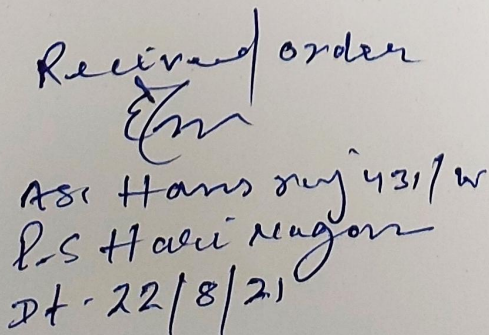 Received order
ASI Hans raj 431/W
P.S Hari Nagar
Dt. 22/8/21